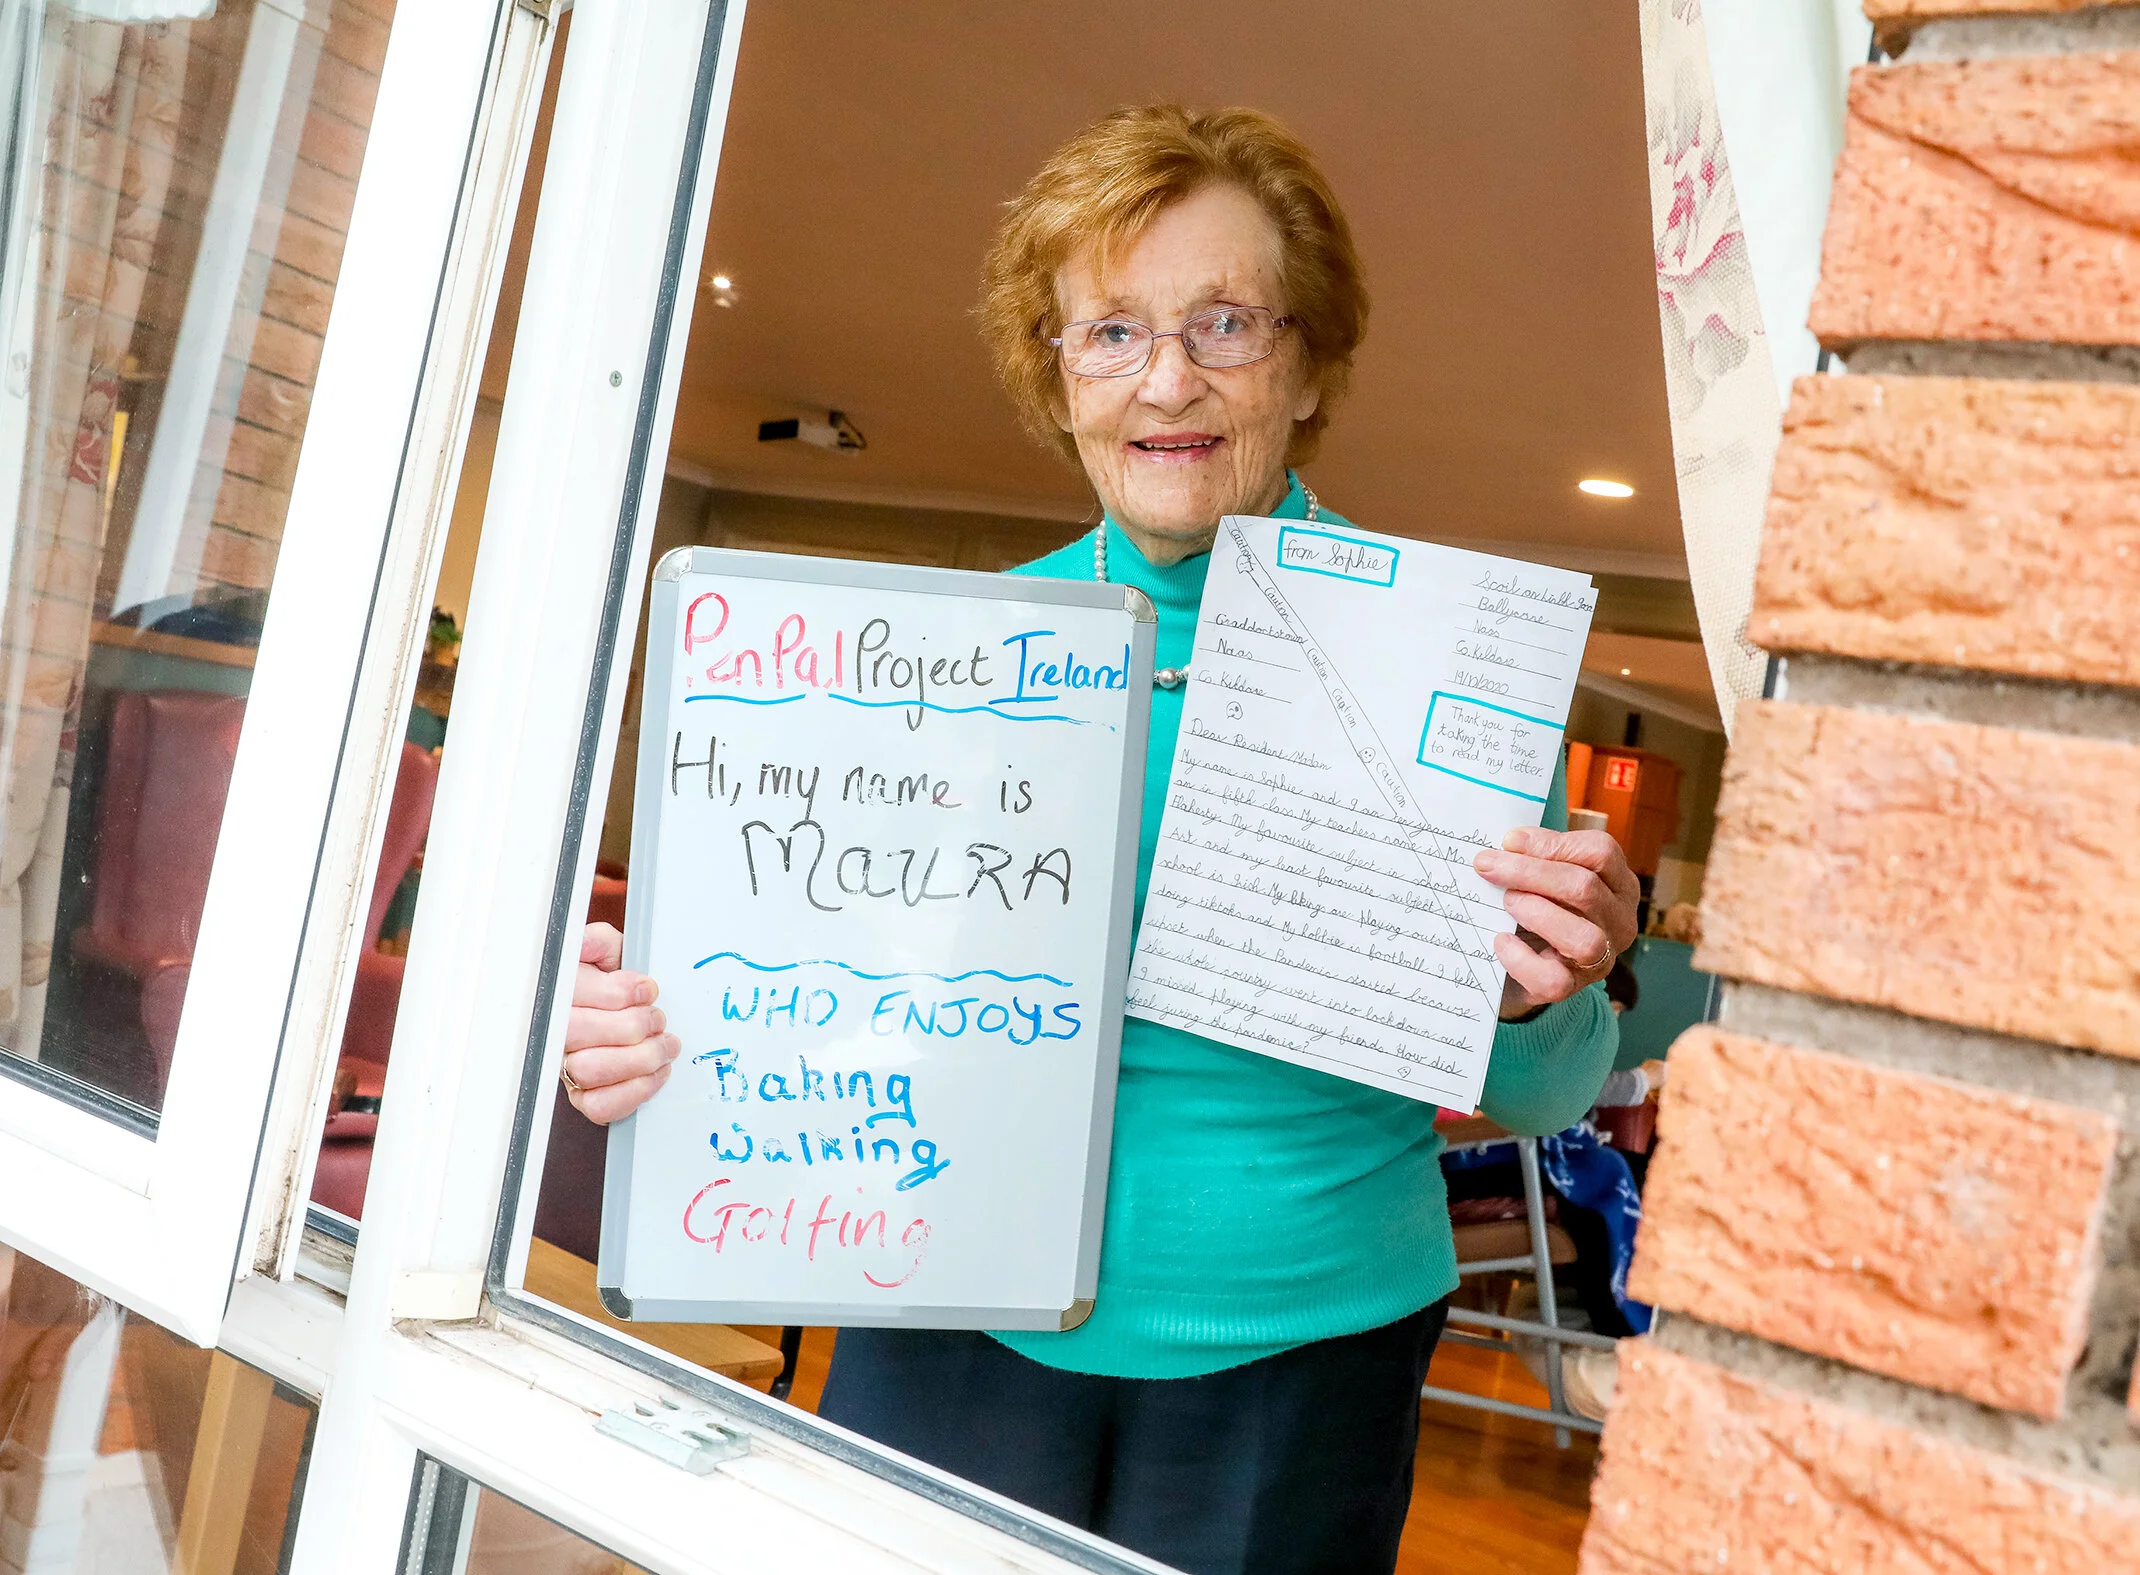 PenPal Project Ireland
Hi, my name is
MauRA
WHO ENJOYS
Baking
Walking
Golfing
from Sophie
Ballycane
Naas
Co. Kildare
19/10/2020
Craddockstown
Naas
Co. Kildare
Thank you for
taking the time
to read my letter.
Caution Caution Caution Caution Caution
Dear Resident/Madam
My name is Sophie and I am ten years old
am in fifth class. My teachers name is Ms.
Flaherty. My favourite subject in school is
Art and my least favourite subject in
school is Irish. My liking are playing outside and
doing tiktoks and My hobbie is football. I felt
upset when the Pandemic started because
the whole country went into lockdown and
I missed playing with my friends. How did
feel juring the pandemic?